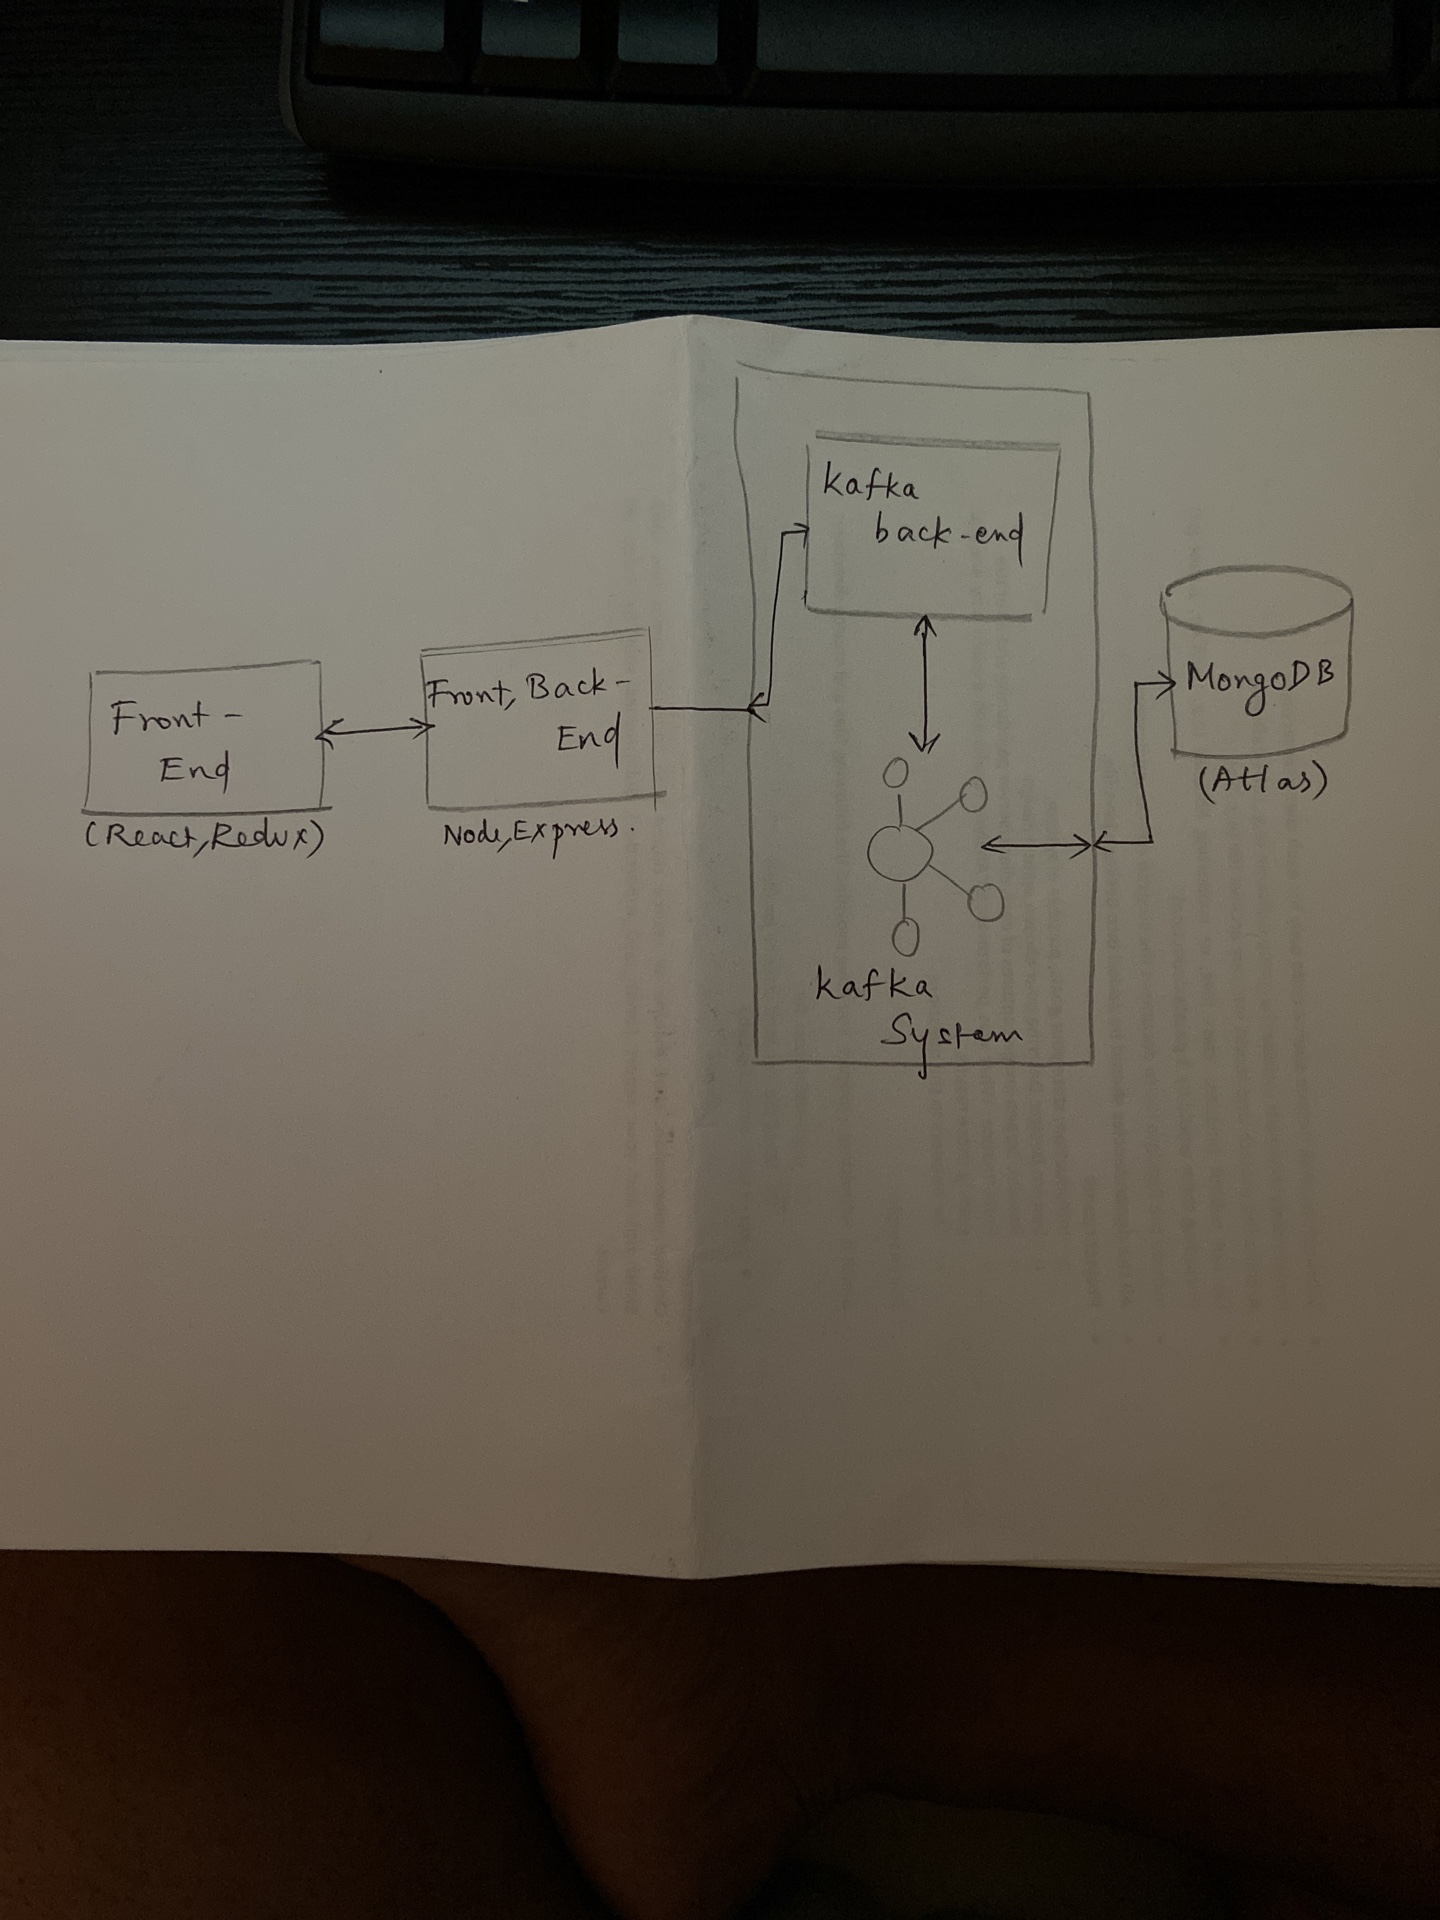 Front-
End
(React,Redux)
Front, Back-
End
Node,Express.
Kafka
back-end
Kafka
System
MongoDB
(Atlas)